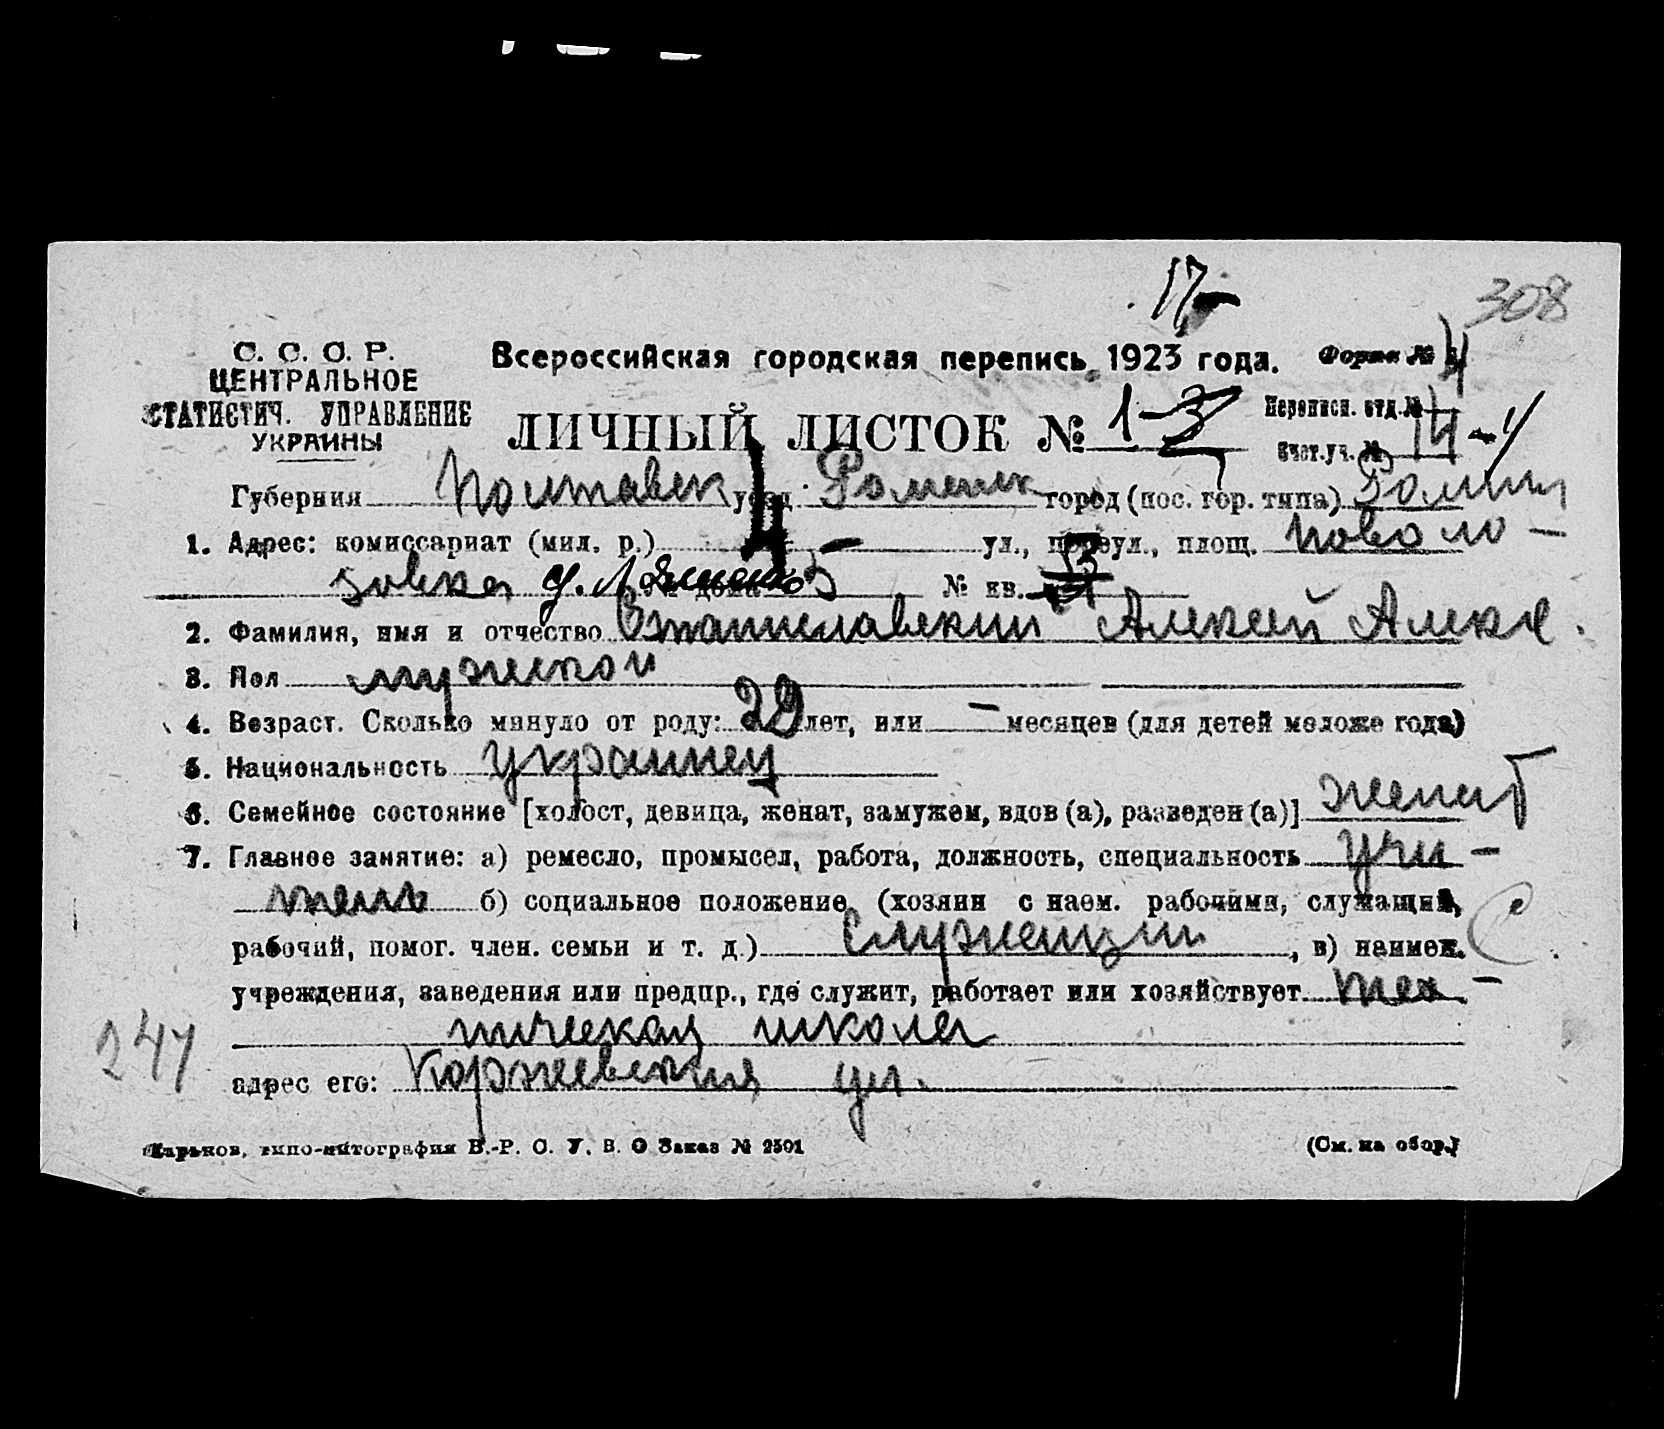 17-
308
С. С. С. Р.
ЦЕНТРАЛЬНОЕ
СТАТИСТИЧ. УПРАВЛЕНИЕ
УКРАИНЫ
Всероссийская городская перепись 1923 года.
Форма № 4
ЛИЧНЫЙ ЛИСТОК № 1-3
Переписн. отд. №
Счет. уч. № 14-
Губерния Полтавск уезд Роменск город (пос. гор. типа) Ромны
1. Адрес: комиссариат (мил. р.) 4 - ул., переул., площ. Новоло-
зовка № дома 5 № кв.
2. Фамилия, имя и отчество Станиславский Алексей Алекс.
3. Пол мужской
4. Возраст. Сколько минуло от роду: 29 лет, или - месяцев (для детей моложе года)
5. Национальность украинец
6. Семейное состояние [холост, девица, женат, замужем, вдов (а), разведен (а)] женат
7. Главное занятие: а) ремесло, промысел, работа, должность, специальность учи-
тель б) социальное положение (хозяин с наем. рабочими, служащий,
рабочий, помог. член. семьи и т. д.) служащий, в) наимен.
учреждения, заведения или предпр., где служит, работает или хозяйствует тех-
ническая школа
247
адрес его: Коржевская ул.
Харьков, типо-литография В.-Р. С. У. В. О Заказ № 2501
(См. на обор.)